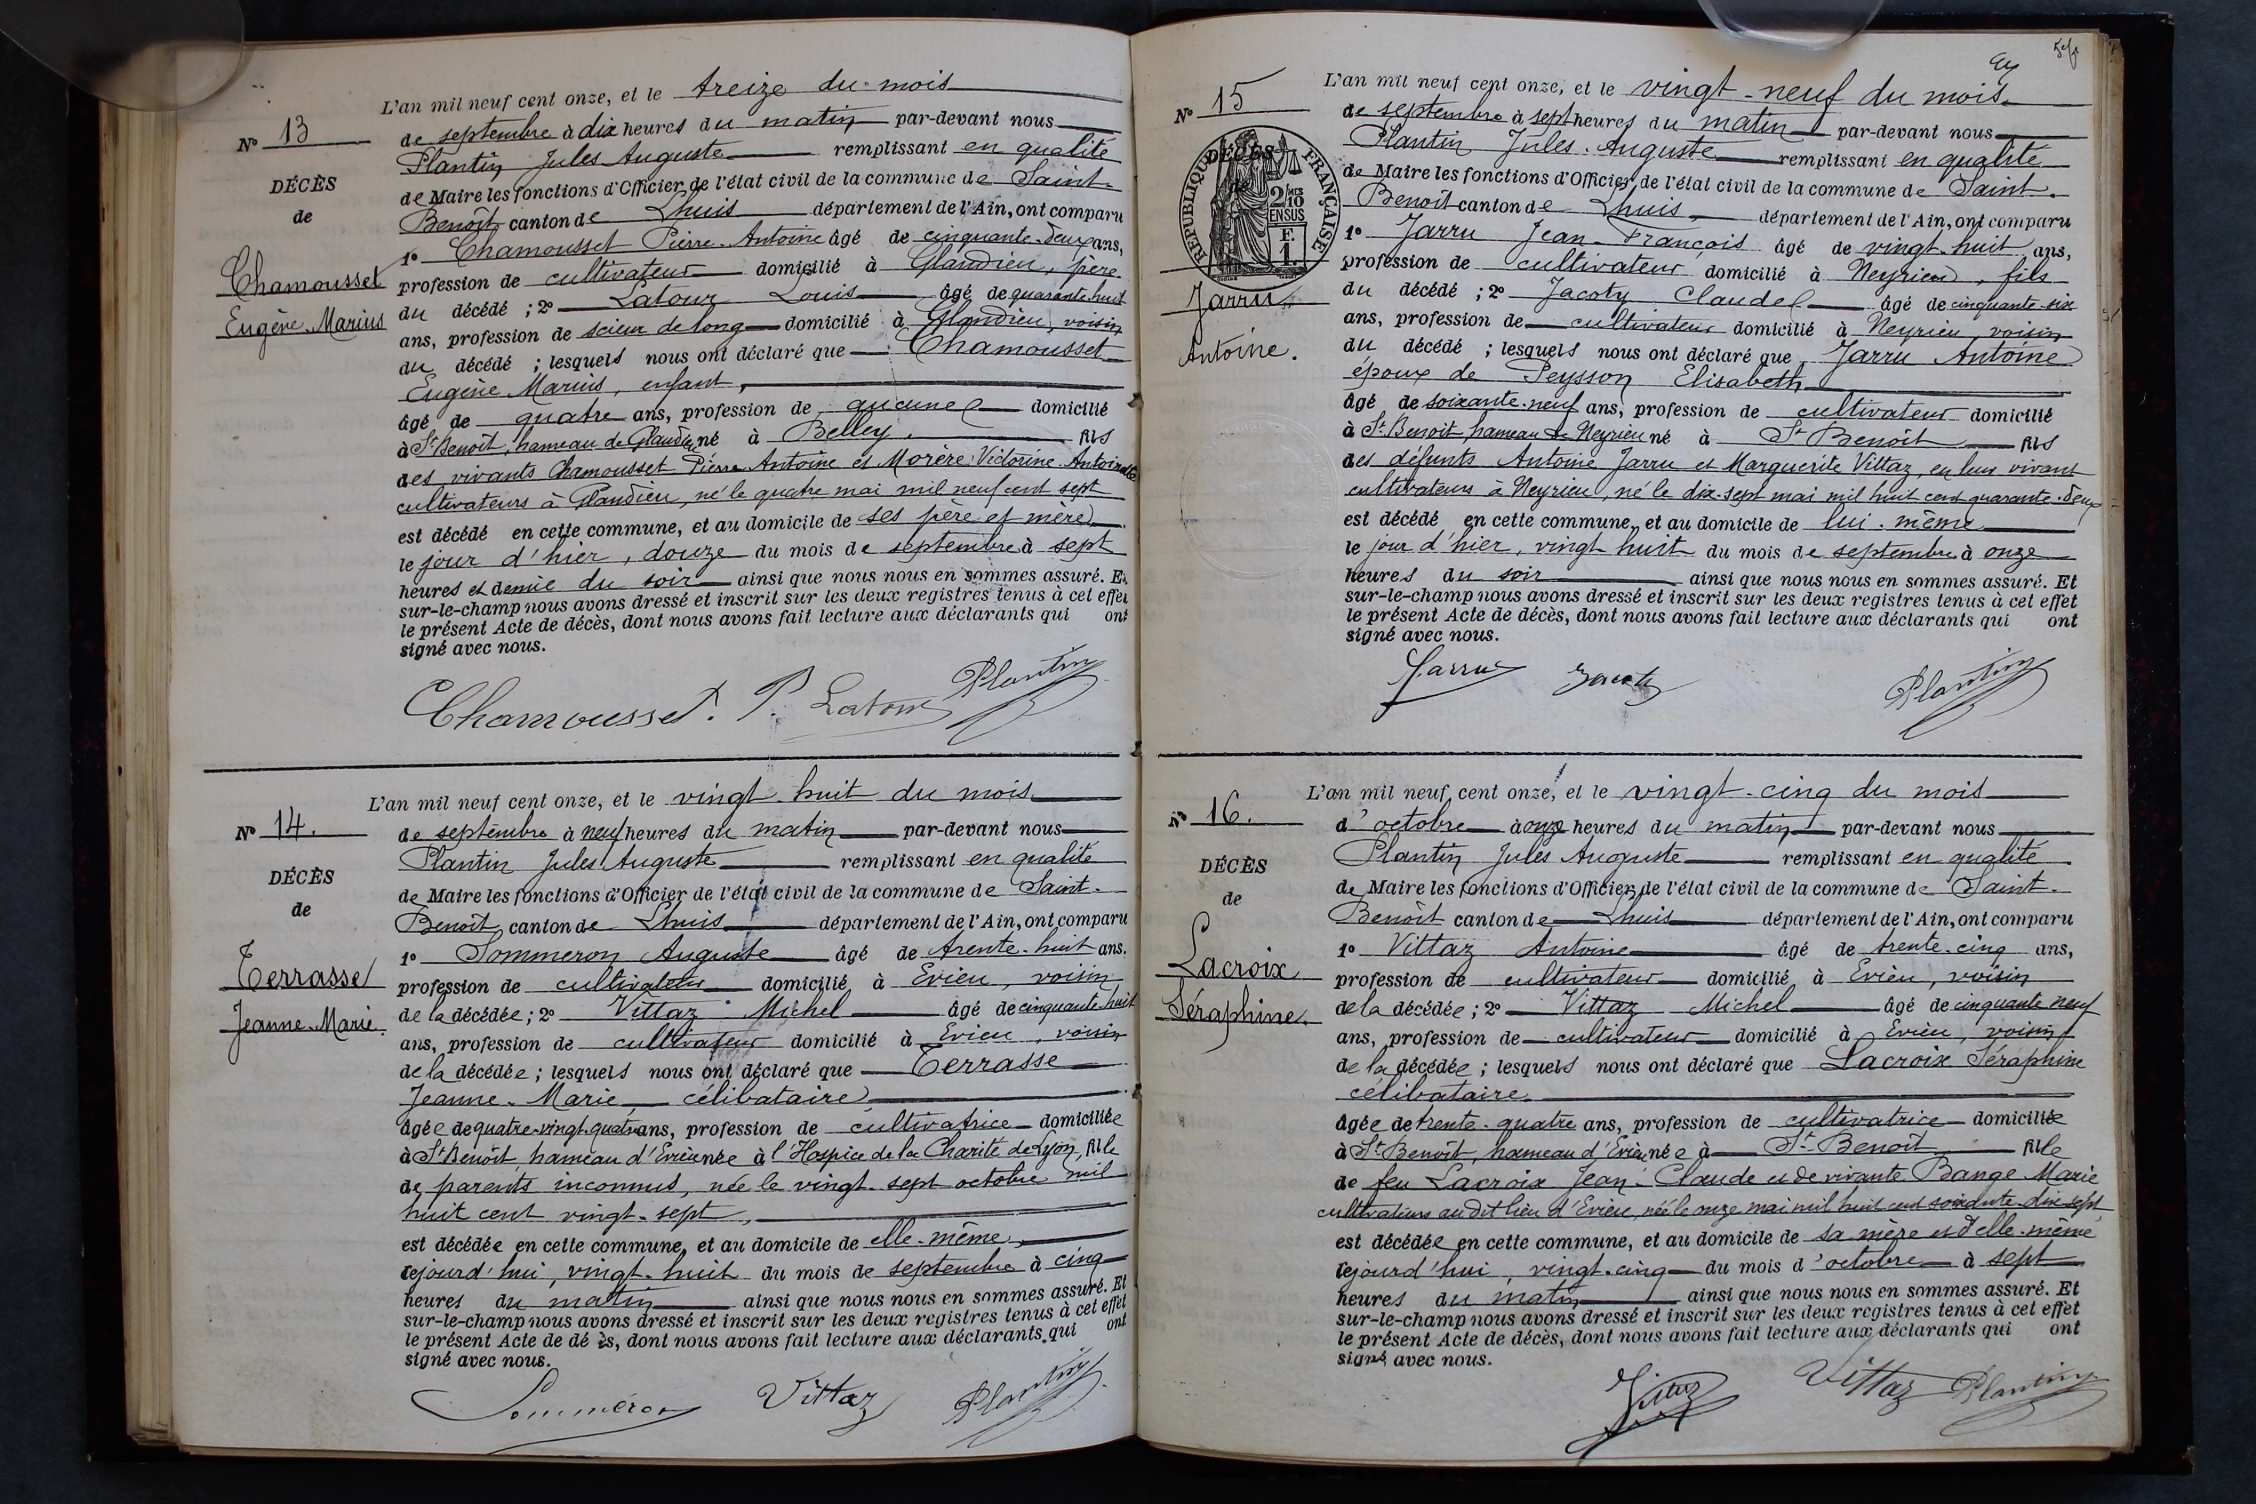 N° 13
DÉCÈS
de
Chamousset
Eugène Marius
L'an mil neuf cent onze, et le treize du mois
de septembre à dix heures du matin par-devant nous
Plantin Jules Auguste remplissant en qualité
de Maire les fonctions d'Officier de l'état civil de la commune de Saint-
Benoît canton de Lhuis département de l'Ain, ont comparu
1° Chamousset Pierre-Antoine âgé de cinquante-deux ans,
profession de cultivateur domicilié à Glandieu, père
du décédé ; 2° Latour Louis âgé de quarante-huit
ans, profession de scieur de long domicilié à Glandieu, voisin
du décédé ; lesquels nous ont déclaré que Chamousset
Eugène Marius, enfant,
âgé de quatre ans, profession de aucune domicilié
à St Benoît, hameau de Glandieu né à Belley, fils
des vivants Chamousset Pierre Antoine et Morère Victorine Antoinette
cultivateurs à Glandieu, né le quatre mai mil neuf cent sept
est décédé en cette commune, et au domicile de ses père et mère
le jour d'hier, douze du mois de septembre à sept
heures et demie du soir ainsi que nous nous en sommes assuré. Et
sur-le-champ nous avons dressé et inscrit sur les deux registres tenus à cet effet
le présent Acte de décès, dont nous avons fait lecture aux déclarants qui ont
signé avec nous.
Chamousset. P. Latour Plantin
N° 14.
DÉCÈS
de
Terrasse
Jeanne-Marie.
L'an mil neuf cent onze, et le vingt-huit du mois
de septembre à neuf heures du matin par-devant nous
Plantin Jules Auguste remplissant en qualité
de Maire les fonctions d'Officier de l'état civil de la commune de Saint-
Benoît canton de Lhuis département de l'Ain, ont comparu
1° Sommeron Auguste âgé de trente-huit ans.
profession de cultivateur domicilié à Evieu, voisin
de la décédée ; 2° Vittaz Michel âgé de cinquante-huit
ans, profession de cultivateur domicilié à Evieu, voisin
de la décédée ; lesquels nous ont déclaré que Terrasse
Jeanne-Marie, célibataire
âgée de quatre-vingt-quatre ans, profession de cultivatrice domiciliée
à St Benoît, hameau d'Evieu née à l'Hospice de la Charité de Lyon, fille
de parents inconnus, née le vingt-sept octobre mil
huit cent vingt-sept,
est décédée en cette commune, et au domicile de elle-même,
cejourd'hui, vingt-huit du mois de septembre à cinq
heures du matin ainsi que nous nous en sommes assuré. Et
sur-le-champ nous avons dressé et inscrit sur les deux registres tenus à cet effet
le présent Acte de dé ès, dont nous avons fait lecture aux déclarants qui ont
signé avec nous.
Sommeron Vittaz Plantin
N° 15
RÉPUBLIQUE FRANÇAISE
2/10 EN SUS
F. 1.
DÉCÈS
de
Jarru
Antoine.
L'an mil neuf cent onze, et le vingt-neuf du mois
de septembre à sept heures du matin par-devant nous
Plantin Jules-Auguste remplissant en qualité
de Maire les fonctions d'Officier de l'état civil de la commune de Saint-
Benoît canton de Lhuis département de l'Ain, ont comparu
1° Jarru Jean-François âgé de vingt-huit ans,
profession de cultivateur domicilié à Neyrieu, fils
du décédé ; 2° Jacoty Claude âgé de cinquante-six
ans, profession de cultivateur domicilié à Neyrieu, voisin
du décédé ; lesquels nous ont déclaré que Jarru Antoine
époux de Peysson Elisabeth
âgé de soixante-neuf ans, profession de cultivateur domicilié
à St Benoît, hameau de Neyrieu né à St Benoît fils
des défunts Antoine Jarru et Marguerite Vittaz, en leur vivant
cultivateurs à Neyrieu, né le dix-sept mai mil huit cent quarante-deux
est décédé en cette commune, et au domicile de lui-même
le jour d'hier, vingt-huit du mois de septembre à onze
heures du soir ainsi que nous nous en sommes assuré. Et
sur-le-champ nous avons dressé et inscrit sur les deux registres tenus à cet effet
le présent Acte de décès, dont nous avons fait lecture aux déclarants qui ont
signé avec nous.
Jarru Jacoty Plantin
N° 16.
DÉCÈS
de
Lacroix
Séraphine.
L'an mil neuf cent onze, et le vingt-cinq du mois
d'octobre à onze heures du matin par-devant nous
Plantin Jules Auguste remplissant en qualité
de Maire les fonctions d'Officier de l'état civil de la commune de Saint-
Benoît canton de Lhuis département de l'Ain, ont comparu
1° Vittaz Antoine âgé de trente-cinq ans,
profession de cultivateur domicilié à Evieu, voisin
de la décédée ; 2° Vittaz Michel âgé de cinquante neuf
ans, profession de cultivateur domicilié à Evieu, voisin
de la décédée ; lesquels nous ont déclaré que Lacroix Séraphine
célibataire
âgée de trente-quatre ans, profession de cultivatrice domiciliée
à St Benoît, hameau d'Evieu née à St Benoît fille
de feu Lacroix Jean-Claude et de vivante Bange Marie
cultivateurs au dit lieu d'Evieu, née le onze mai mil huit cent soixante-dix-sept
est décédée en cette commune, et au domicile de sa mère et d'elle-même
cejourd'hui, vingt-cinq du mois d'octobre à sept
heures du matin ainsi que nous nous en sommes assuré. Et
sur-le-champ nous avons dressé et inscrit sur les deux registres tenus à cet effet
le présent Acte de décès, dont nous avons fait lecture aux déclarants qui ont
signé avec nous.
Vittaz Vittaz Plantin